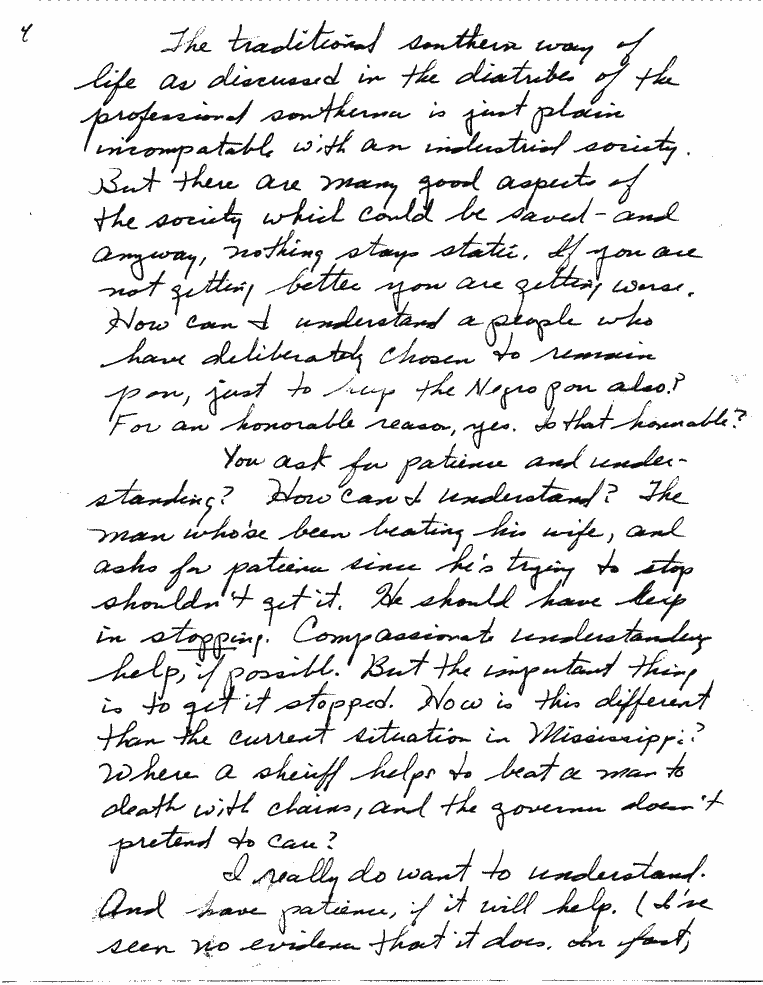 4
The traditional southern way of
life as discussed in the diatribes of the
professional southerner is just plain
incompatable with an industrial society.
But there are many good aspects of
the society which could be saved - and
anyway, nothing stays static. If you are
not getting better you are getting worse.
How can I understand a people who
have deliberately chosen to remain
poor, just to keep the Negro poor also?
For an honorable reason, yes. Is that honorable?
You ask for patience and under-
standing? How can I understand? The
man who'se been beating his wife, and
asks for patience since he's trying to stop
shouldn't get it. He should have help
in stopping. Compassionate understanding
help, if possible. But the important thing
is to get it stopped. How is this different
than the current situation in Mississippi?
Where a sheriff helps to beat a man to
death with chains, and the governor doesn't
pretend to care?
I really do want to understand.
And have patience, if it will help. (I've
seen no evidence that it does. In fact,